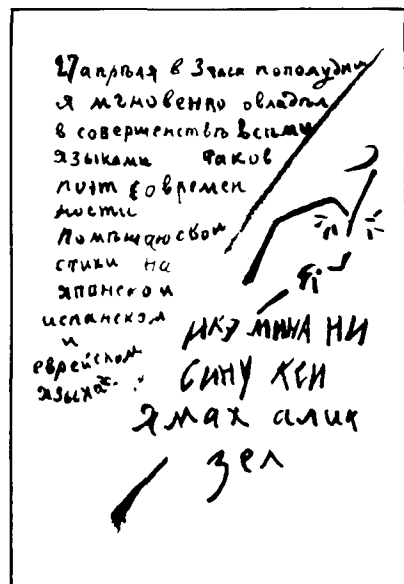 27 апрѣля в 3 часа пополудни
я мгновенно овладѣл
в совершенствѣ всеми
языками Таков
поэт современ
ности
Помѣщаю свои
стихи на
японском
испанском
и
еврейском
языках:
икэ мина ни
сину кси
ямах алик
зел